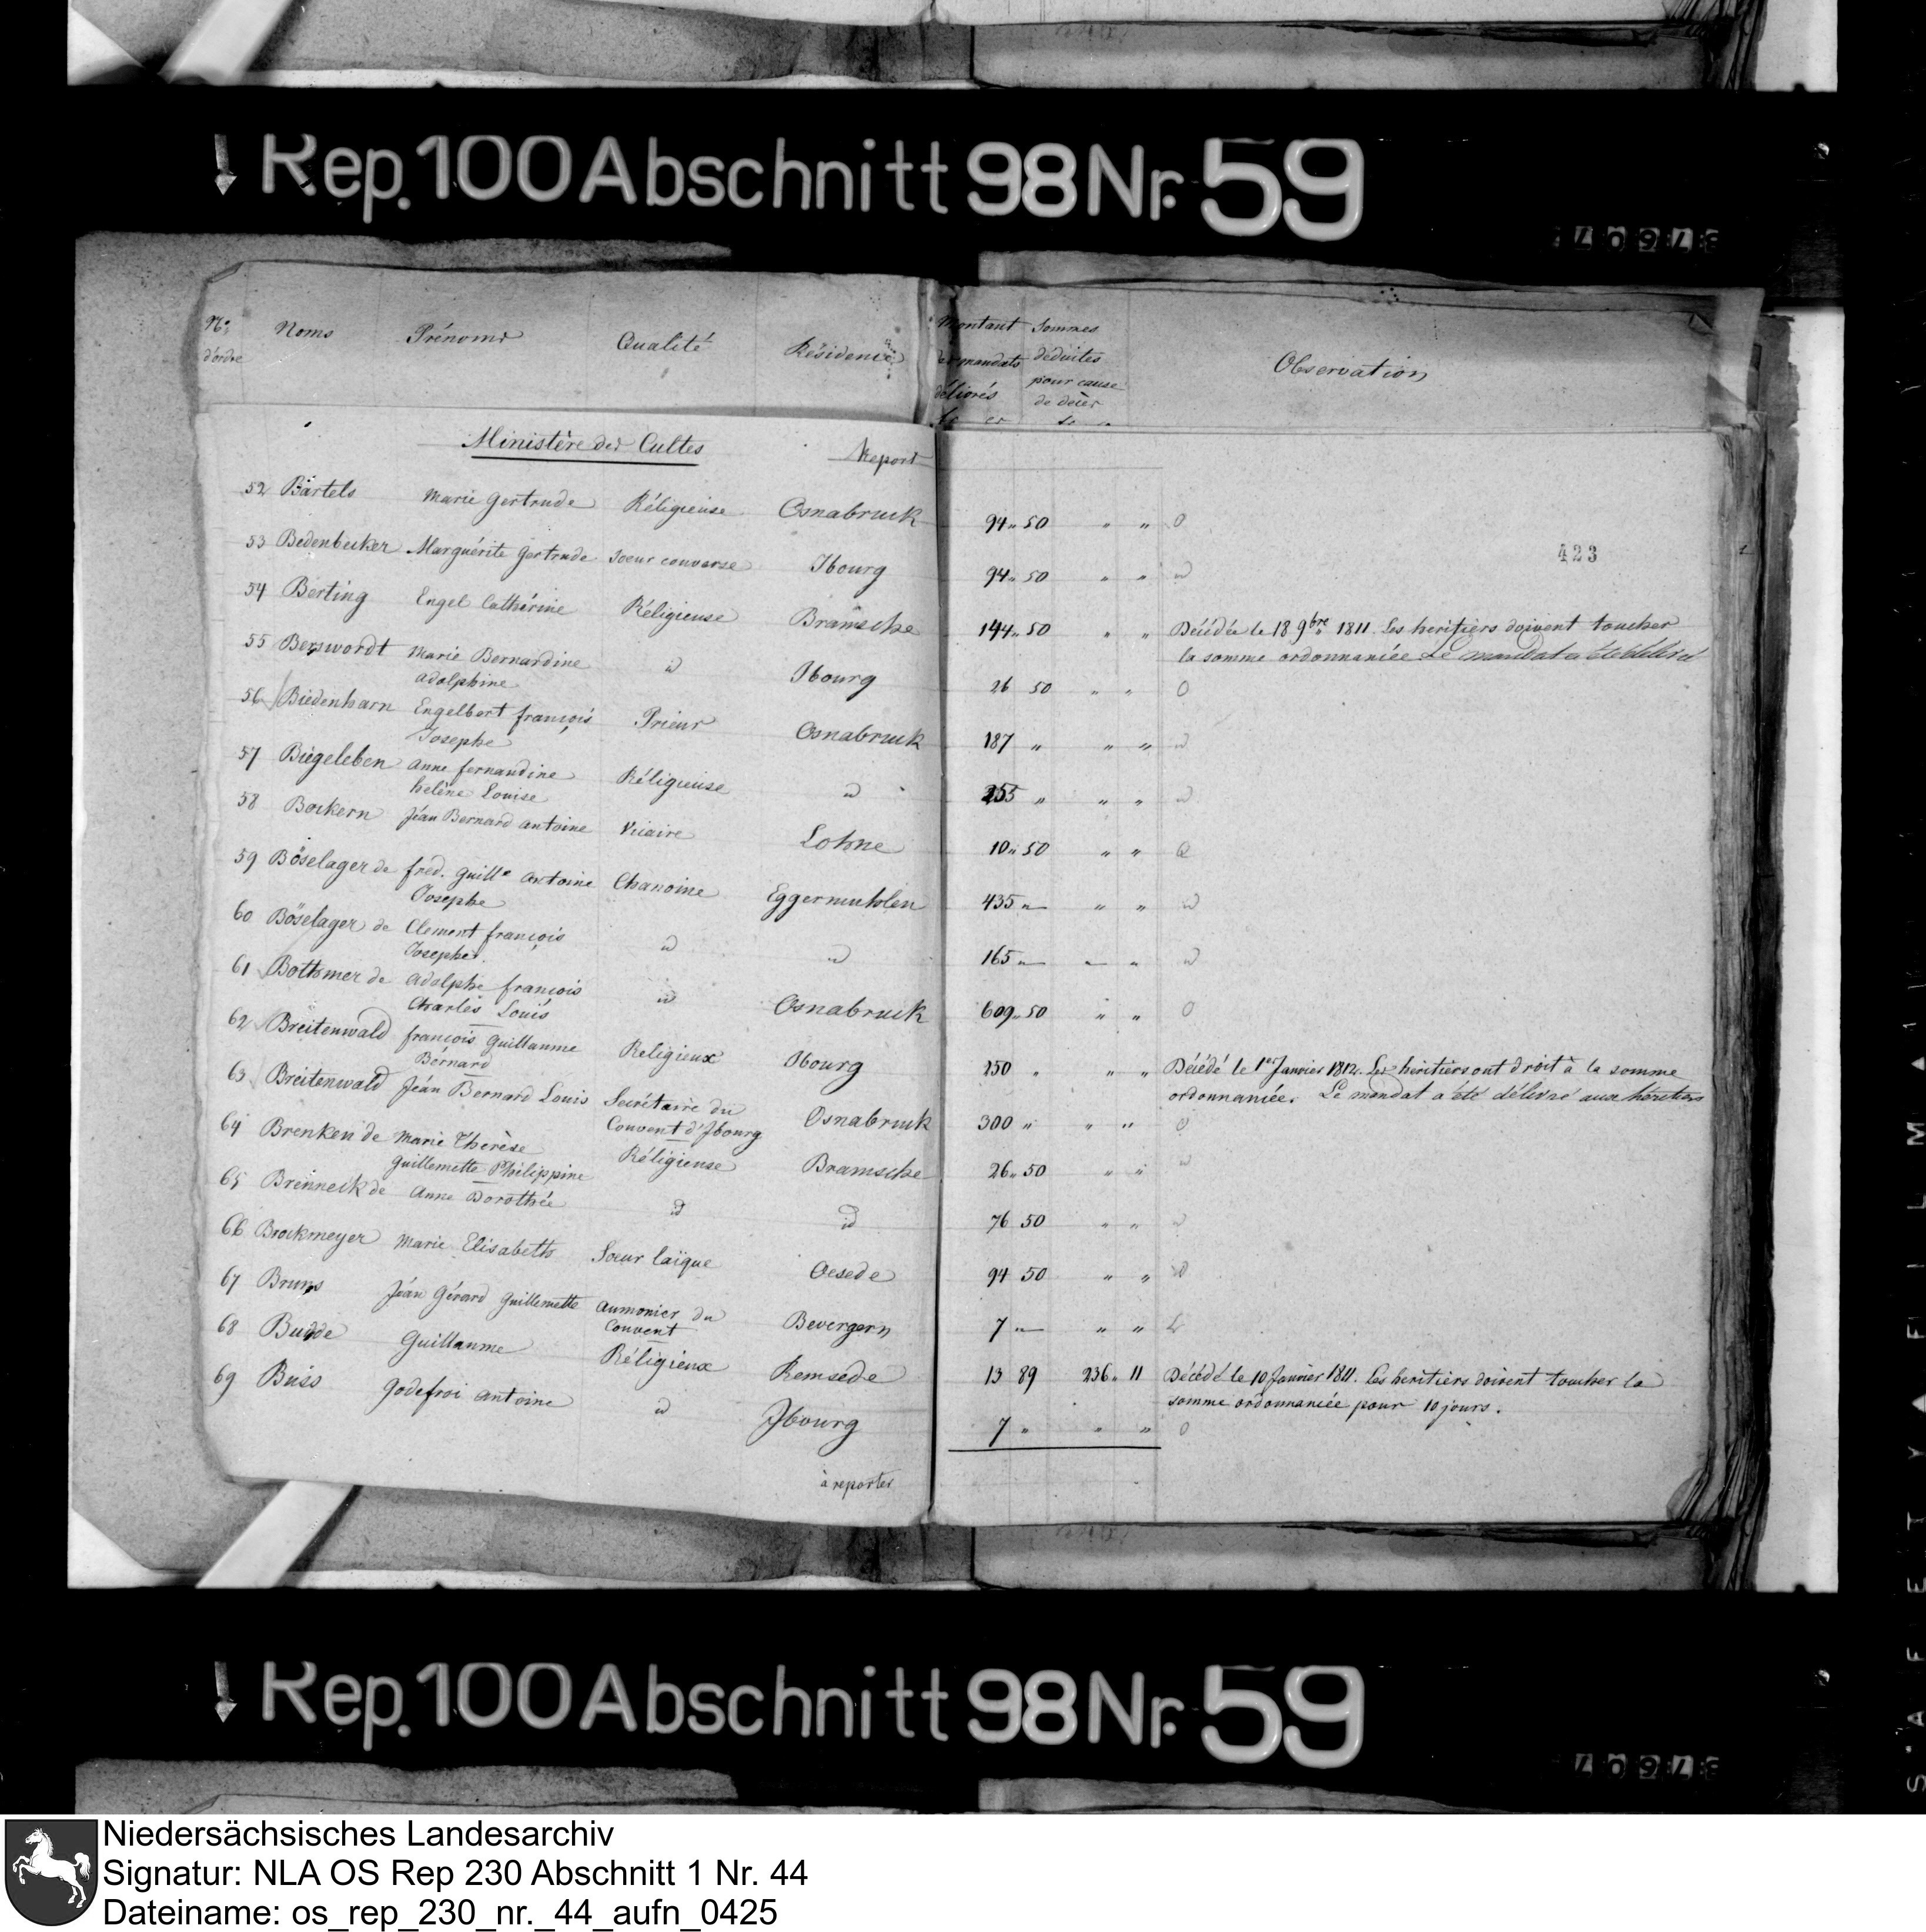 Rep. 100 Abschnitt 98 Nr. 59
37607
No. d'ordre Noms Prénoms Qualité Résidence Montant des mandats délivrés sommes déduites pour cause de décès Observation
Ministère des Cultes Report
423
52 Bärtels Marie Gertrude Réligieuse Osnabruck 94 " 50 " "
53 Bedenbecker Marguérite Gertrude soeur converse Ibourg 94 " 50 " "
54 Berting Engel Cathérine Réligieuse Bramsche 144 " 50 " " Décédée le 18 9bre 1811. Les heritiers doivent toucher
la somme ordonnancée Le mandat a été délivré
55 Berswordt Marie Bernardine id Ibourg 26 50 " "
adolphine
56 Biedenharn Engelbert françois Prieur Osnabruck 187 " " "
Josephe
57 Biegeleben anne fernandine Réligieuse id 255 " " "
heléne Louise
58 Bockern Jéan Bernard antoine Vicaire Lohne 10 " 50 " "
59 Böselager de fréd. Guille antoine Chanoine Eggermuhlen 435 " " "
Josephe
60 Böselager de Clement françois id id 165 " " "
Josephe
61 Bothmer de adolphe françois id Osnabruck 609 " 50 " "
Charles Louis
62 Breitenwald françois Guillaume Religieux Ibourg 250 " " " Décédé le 1er Janvier 1812. Les héritiers ont droit à la somme
Bérnard ordonnancée. Le mandat a été délivré aux héritiers
63 Breitenwald Jéan Bernard Louis Secrétaire du Osnabruck 300 " " "
Convent d'Ibourg
64 Brenken de Marie Therèse Réligieuse Bramsche 26 " 50 " "
Guillemette Philippine
65 Brenneck de Anne Dorothée id id 76 50 " "
66 Brockmeyer Marie Elisabeth Soeur laïque Oesede 94 50 " "
67 Bruns Jéan Gérard Guillemette aumonier du Bevergern 7 " " "
Convent
68 Budde Guillaume Réligieux Remsede 13 89 236 " 11 Décédé le 10 Janvier 1811. Les heritiers doivent toucher la
somme ordonnancée pour 10 jours.
69 Buss Godefroi antoine id Ibourg 7 " " "
à reporter
Rep. 100 Abschnitt 98 Nr. 59
37607
SAFETY FILM
Niedersächsisches Landesarchiv
Signatur: NLA OS Rep 230 Abschnitt 1 Nr. 44
Dateiname: os_rep_230_nr._44_aufn_0425